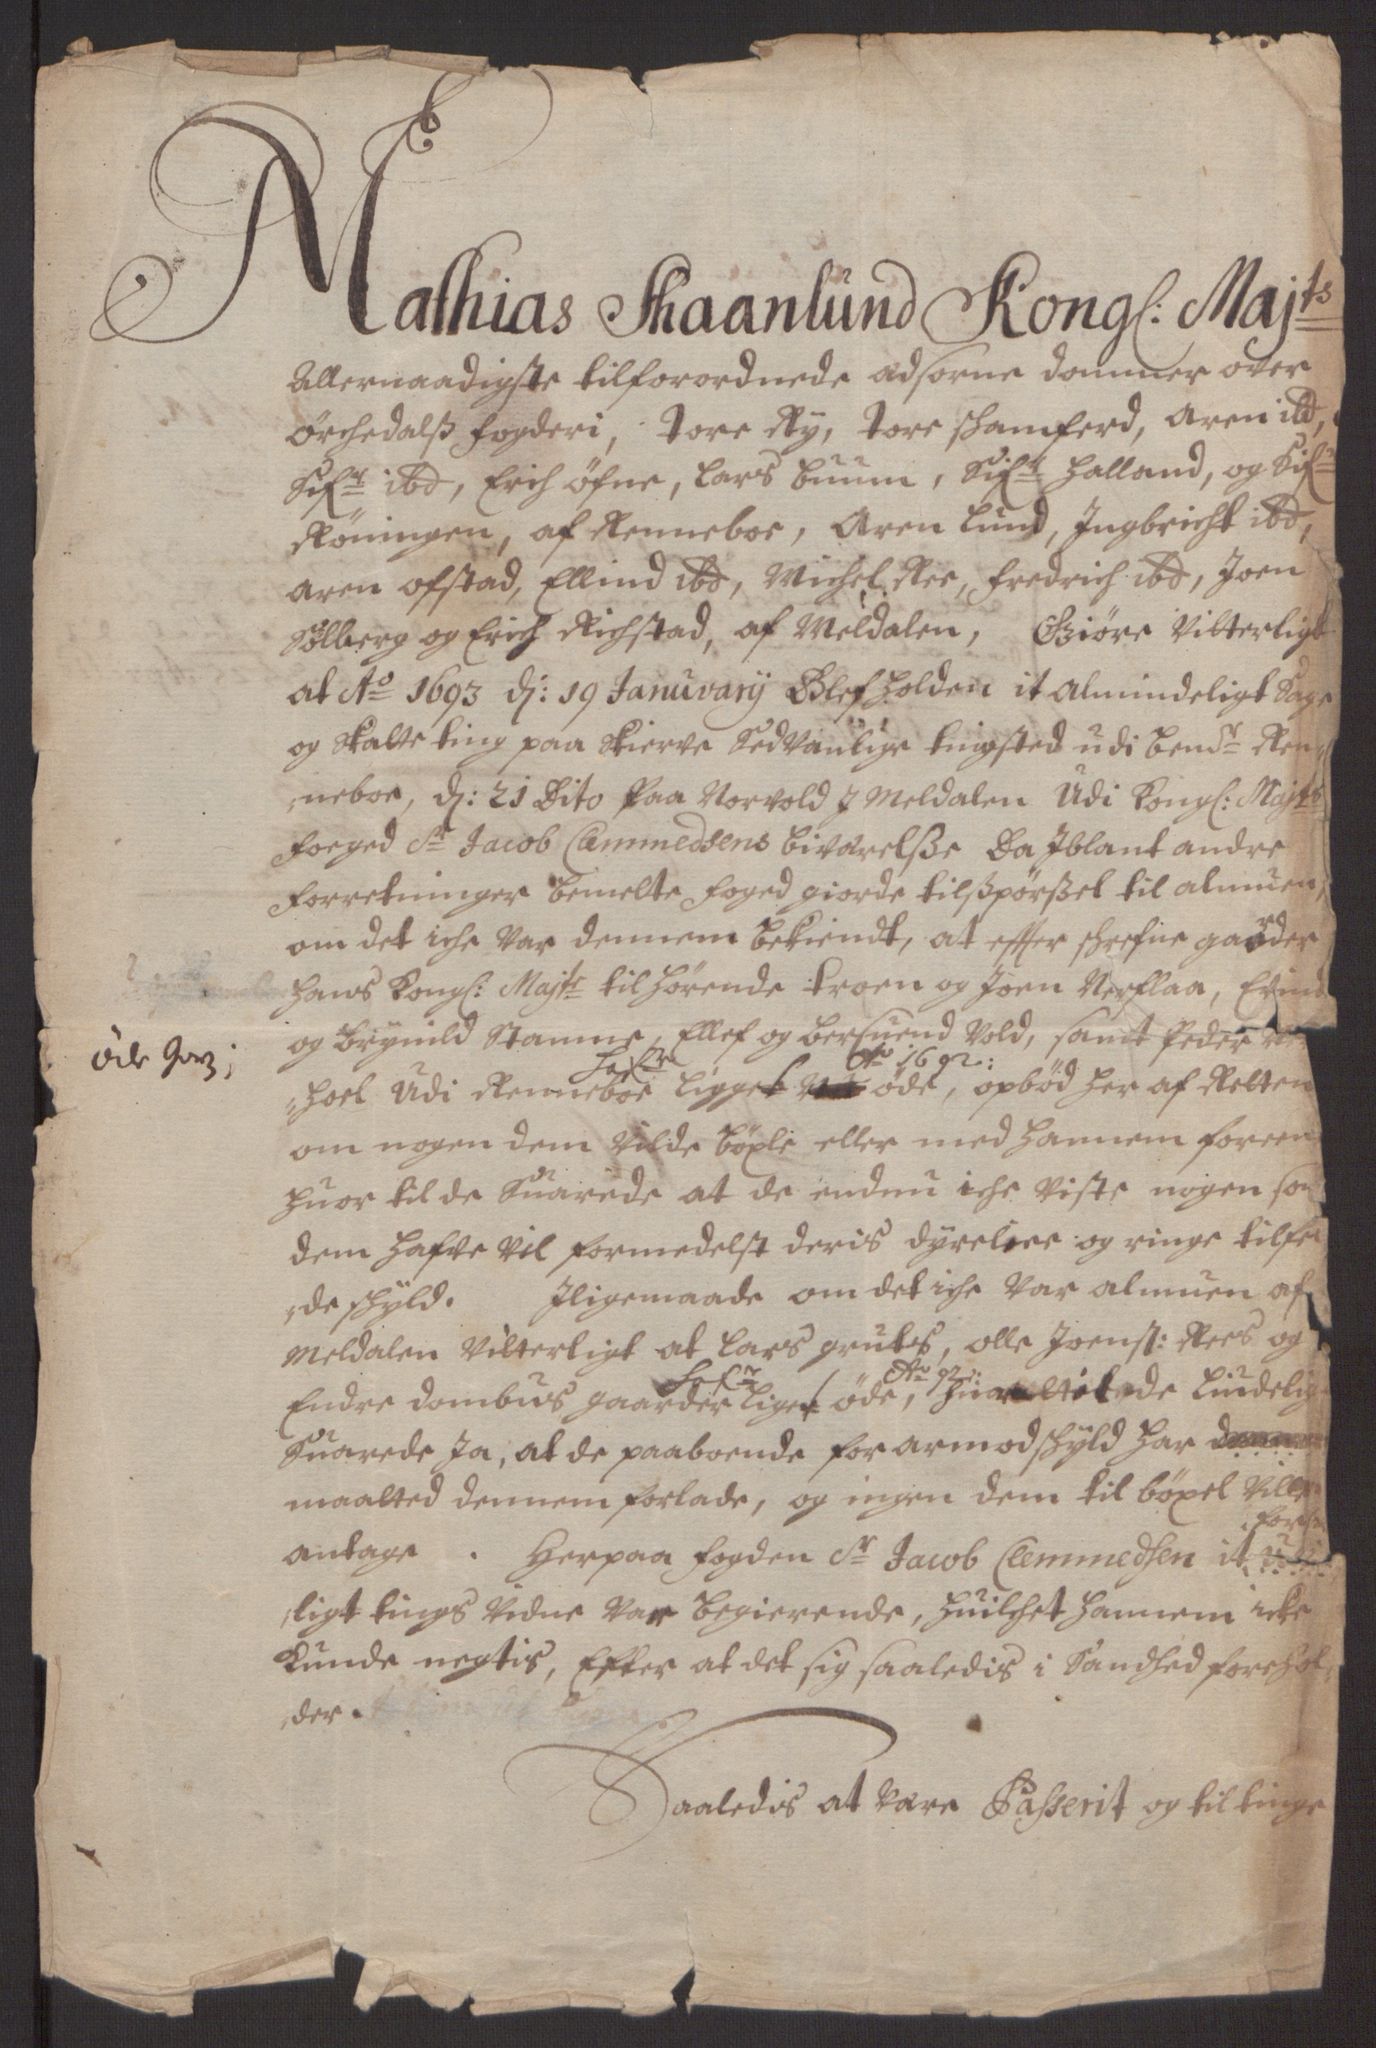 Mathias Skaanlund Kongl: Majts
Allernaadigste tilforordnede Edsorne dommer over
Örchedalß fogderi, Tore Ry, Tore Schamferd, Aren ibd,
Sifr ibd, Erich öfne, Lars buum, Sifr Halland, og Sifr
Röningen, af Renneboe, Aren Lund, Ingbricht ibd,
Aren ofstad, Ellind ibd, Michel Ree, fredrich ibd, Joen
Sölberg og Erich Richstad, af Meldalen, Giöre Vitterligt
at Ao 1693 dj: 19 Januvarij Blef holden it Almindeligt Sage
og Skatte ting paa Skierve Sedvanlige tingsted udi bemdte Ren-
neboe, dj: 21 Dito Paa Norvold J Meldalen Udi Kongl: Majts
foeged Sr Jacob Clemmedsens biværelße Da Jblant andre
forretninger bemelte foged giorde tilßpörßel til almuen,
om det iche Var dennem bekiendt, at effter schrefne gaarder
hans Kongl: Majts til hörende troen og Joen Nerflaa, Evind
og brynild Stamne, Ellef og bersuend Vold, samt Peder
hoel Udi Renneboe ligget öde, opböd her af Retten
Ao 1692:
om nogen dem Vilde böxle eller med hannem foreen
huor til de Suarede at de endnu iche Viste nogen som
dem hafve Vil formedelst deris dyrelsee og ringe tilfel
de schyld. Jligemaade om det iche Var almuen af
Meldalen Vitterligt at Lars gruts, olle Joens: Rees og
Endre dombus gaarder ligget öde, huortil de liudelig
Ao 92:
Suarede Ja, at de paaboende for armod schyld har
maatted dennem forlade, og ingen dem til böxel Ville
antage. Herpaa fogden Sr Jacob Clemmedsen it
ligt tings Vidne Var begierende, huilchet hannem icke
Kunde negtis, Efter at det sig saaledis i Sandhed forehol-
der.
öde Jorz;
Saaledis at Være Passerit og til tinge